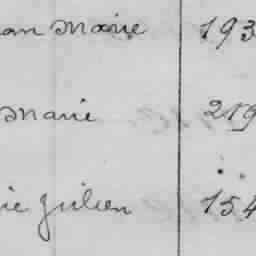 an Marie 193
Marie 219
ie Julien 154